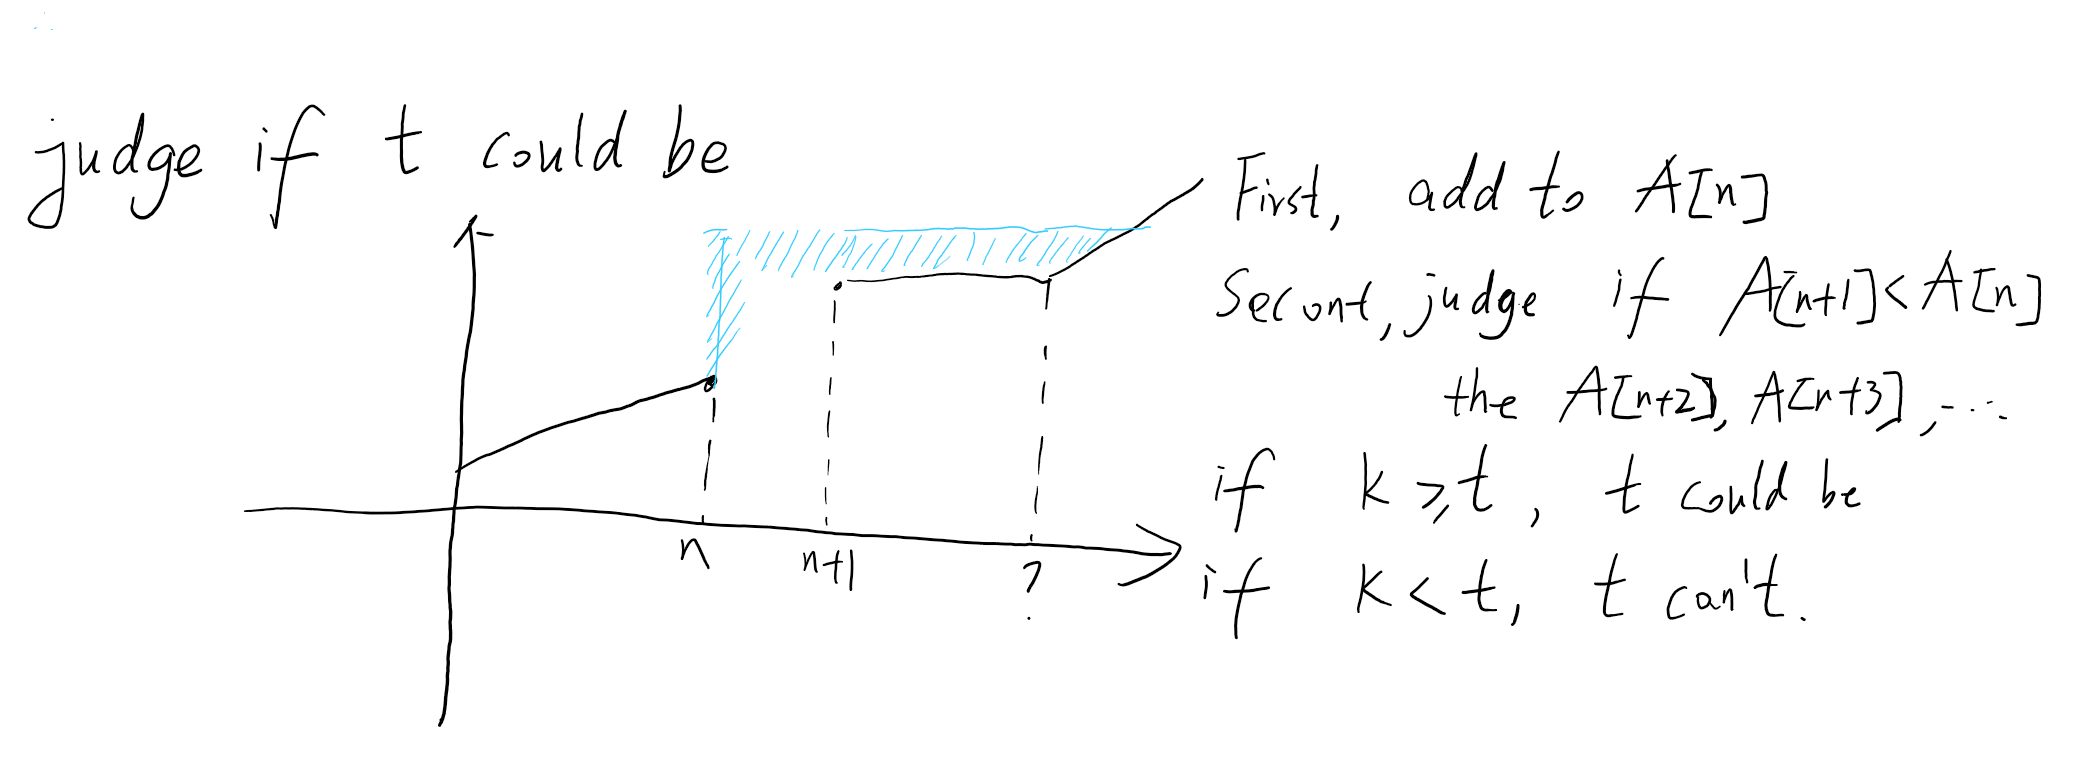 judge if t could be
First, add to A[n]
Secont, judge if A[n+1]<A[n]
the A[n+2], A[n+3], ....
if k⩾t, t could be
if k<t, t can't.
n n+1 ?